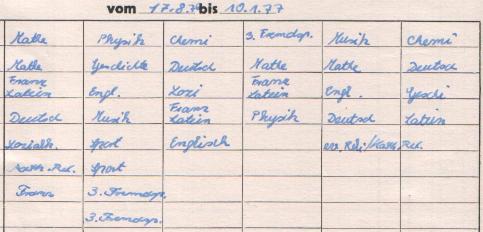 vom 17.8.76 bis 10.1.77
Mathe Physik Chemi 3. Fremdsp. Musik Chemi
Mathe Geschichte Deutsch Mathe Mathe Deutsch
Franz Franz
Latein Engl. Sozi Latein Engl. Geschi
Franz
Deutsch Musik Latein Physik Deutsch Latein
Sozialk. Sport Englisch ev. Reli/Kath. Rel.
Kath. Rel. Sport
Franz 3. Fremdsp.
3. Fremdsp.